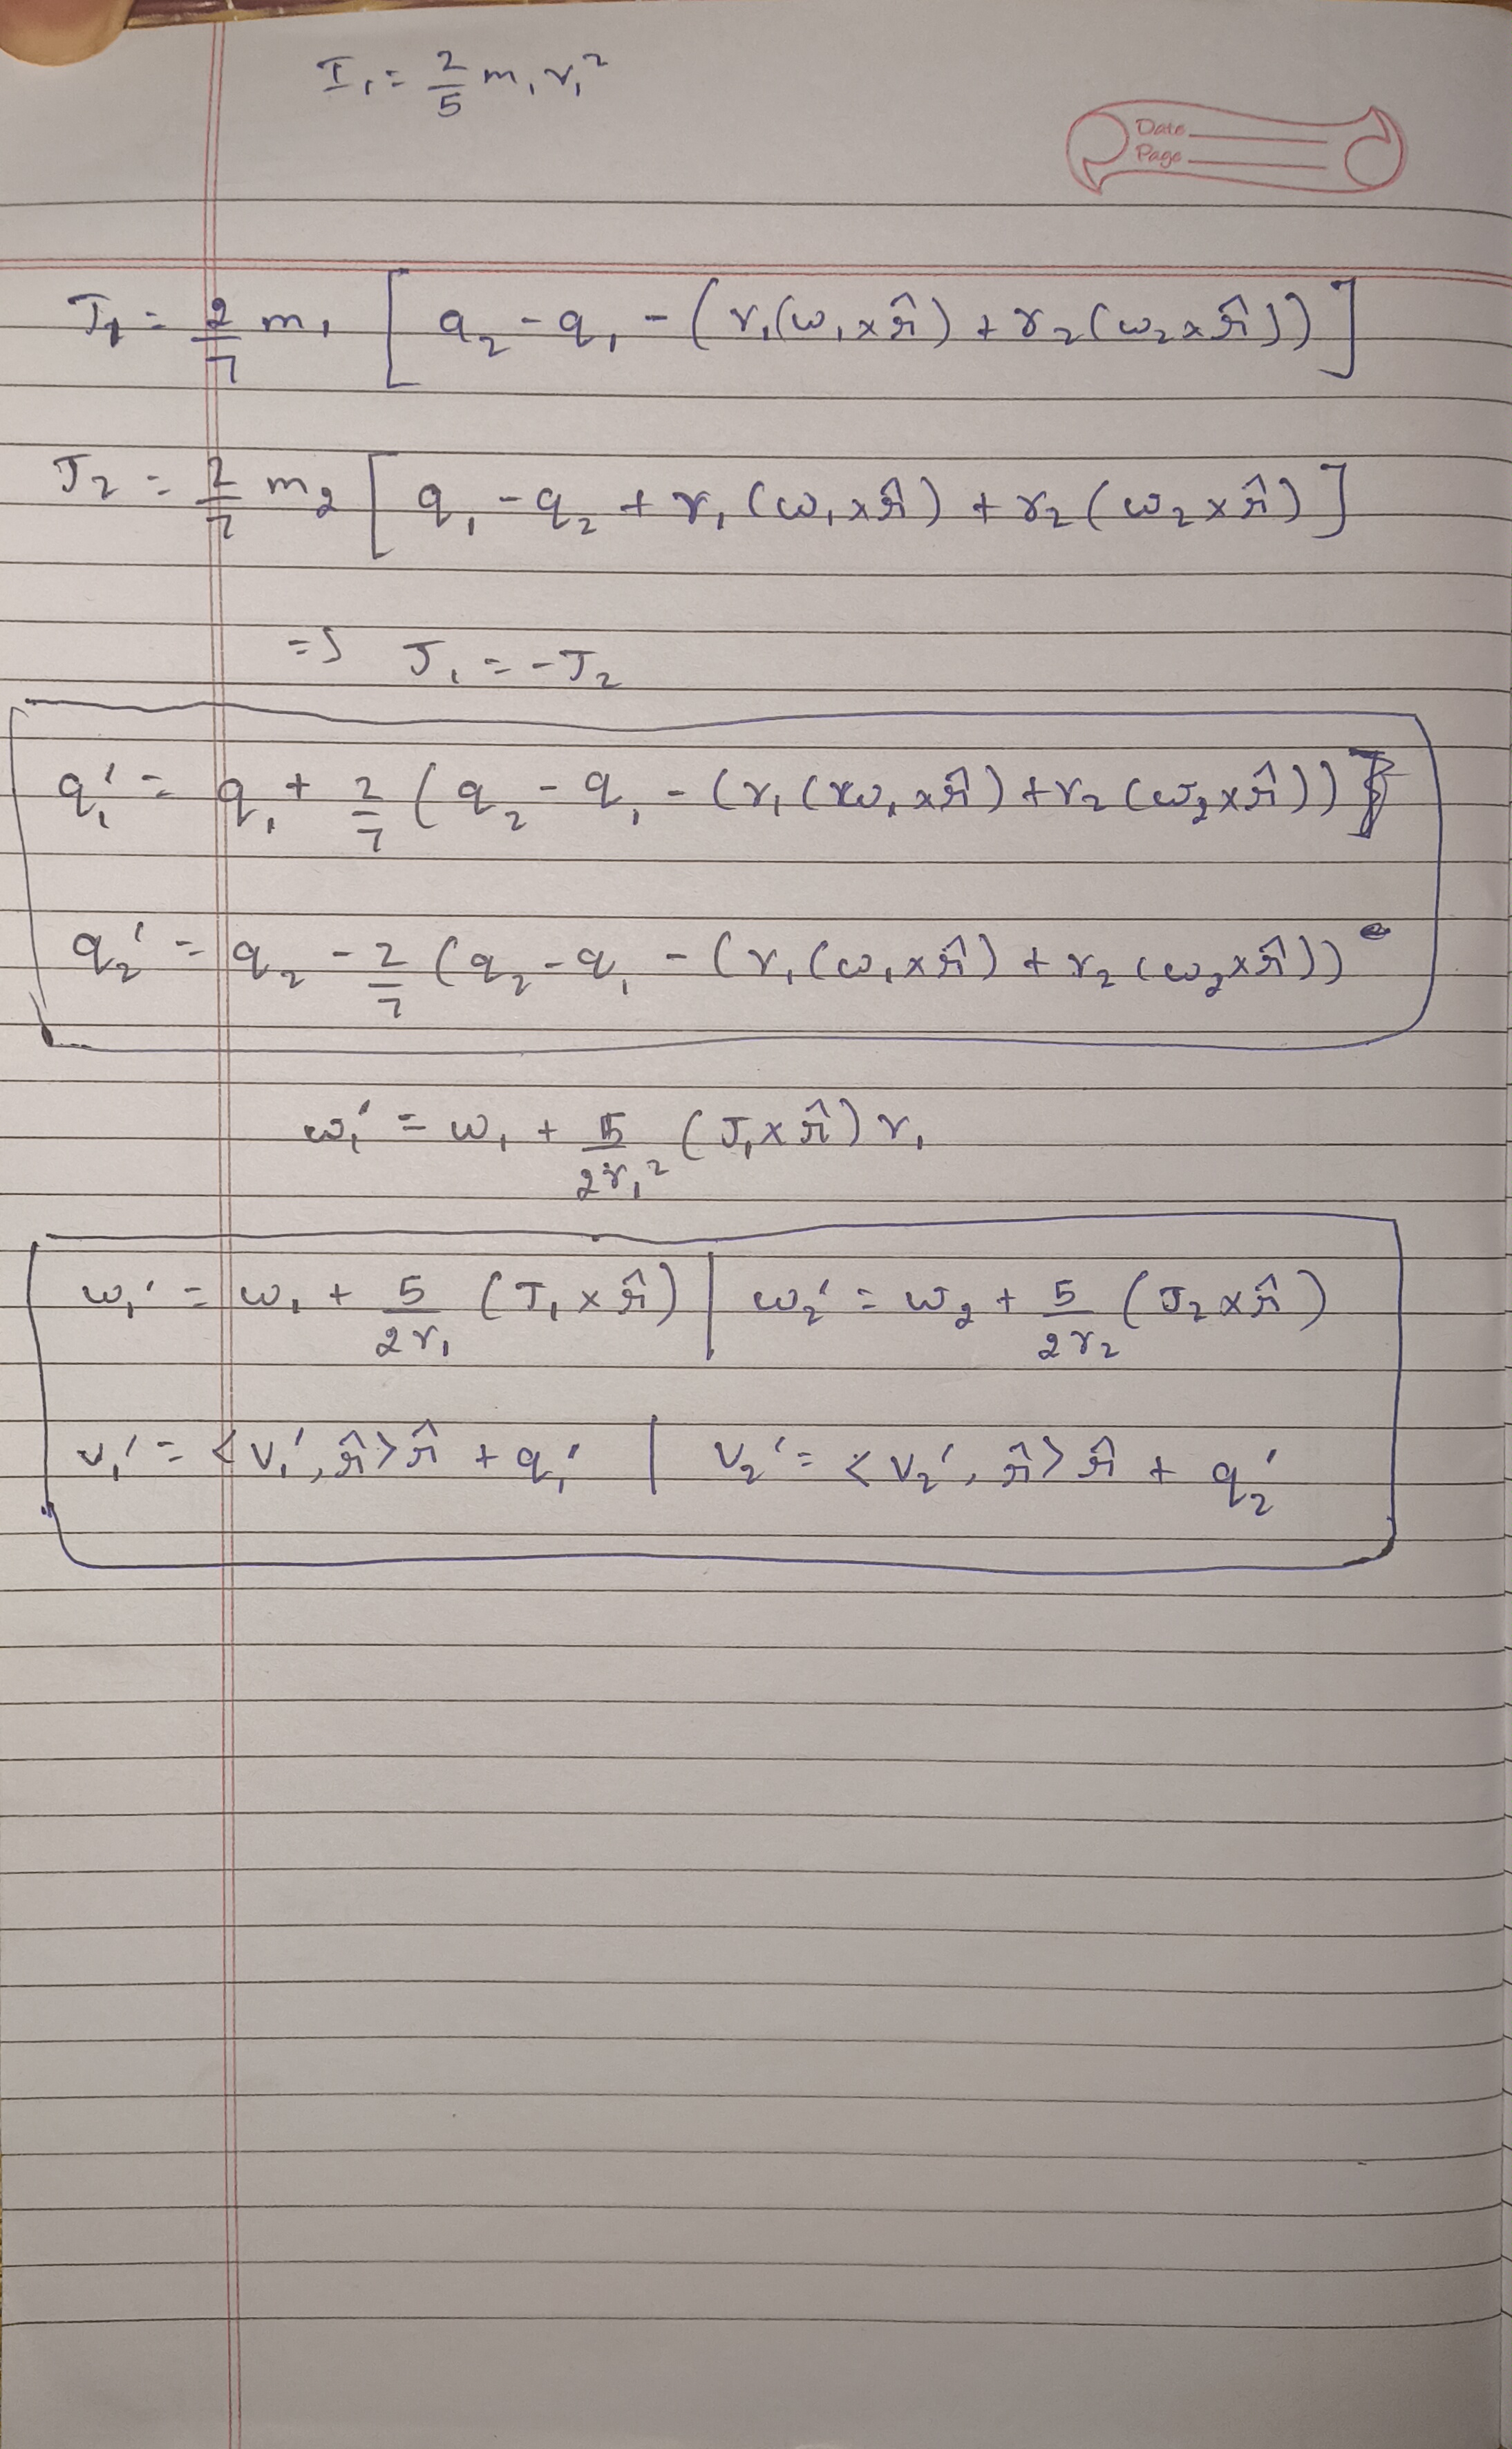 I₁ = 2/5 m₁ r₁²
Date
Page
J₁ = 2/7 m₁ [ q₂ - q₁ - (r₁(ω₁ x n̂) + r₂(ω₂ x n̂)) ]
J₂ = 2/7 m₂ [ q₁ - q₂ + r₁(ω₁ x n̂) + r₂(ω₂ x n̂) ]
=> J₁ = -J₂
q₁' = q₁ + 2/7 (q₂ - q₁ - (r₁(ω₁ x n̂) + r₂(ω₂ x n̂))
q₂' = q₂ - 2/7 (q₂ - q₁ - (r₁(ω₁ x n̂) + r₂(ω₂ x n̂))
ω₁' = ω₁ + 5/2r₁² (J₁ x n̂) r₁
ω₁' = ω₁ + 5/2r₁ (J₁ x n̂) | ω₂' = ω₂ + 5/2r₂ (J₂ x n̂)
v₁' = <v₁', n̂> n̂ + q₁' | v₂' = <v₂', n̂> n̂ + q₂'